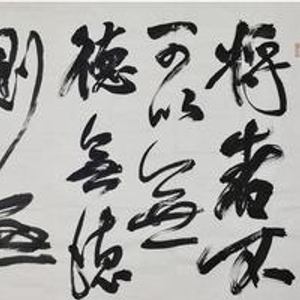 將者不
可以無
德無德
則無